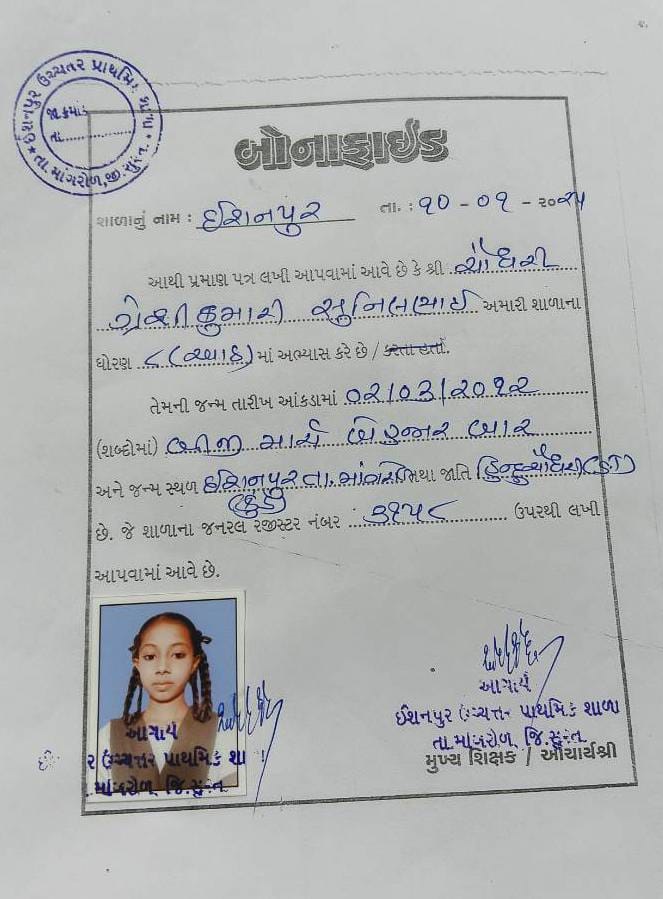 ઈશનપુર ઉચ્ચતર પ્રાથમિક શાળા
જા.ક્રમાંક
તા.
તા.માંગરોળ,જી.સુરત.
બોનાફાઈડ
શાળાનું નામ : ઈશિનપુર તા. : ૧૦ - ૦૧ - ૨૦૨૫
આથી પ્રમાણ પત્ર લખી આપવામાં આવે છે કે શ્રી ચૌધરી
કુમારી સુનિલભાઈ અમારી શાળાના
ધોરણ ૮ (આઠ) માં અભ્યાસ કરે છે / કરતા હતાં.
તેમની જન્મ તારીખ આંકડામાં ૦૨/૦૩/૨૦૧૨
(શબ્દોમાં) બીજી માર્ચ બે હજાર બાર
અને જન્મ સ્થળ ઈશિનપુર તા. માંગરોળ તથા જાતિ હિન્દુ ચૌધરી (ST)
છે. જે શાળાના જનરલ રજીસ્ટર નંબર ૩૧૫૮ ઉપરથી લખી
આપવામાં આવે છે.
આચાર્ય
ઈશનપુર ઉચ્ચત્તર પ્રાથમિક શાળા
તા.માંગરોળ જિ.સુરત
મુખ્ય શિક્ષક / આચાર્યશ્રી
આચાર્ય
ર ઉચ્ચત્તર પ્રાથમિક શા
માંગરોળ જિ.સુરત